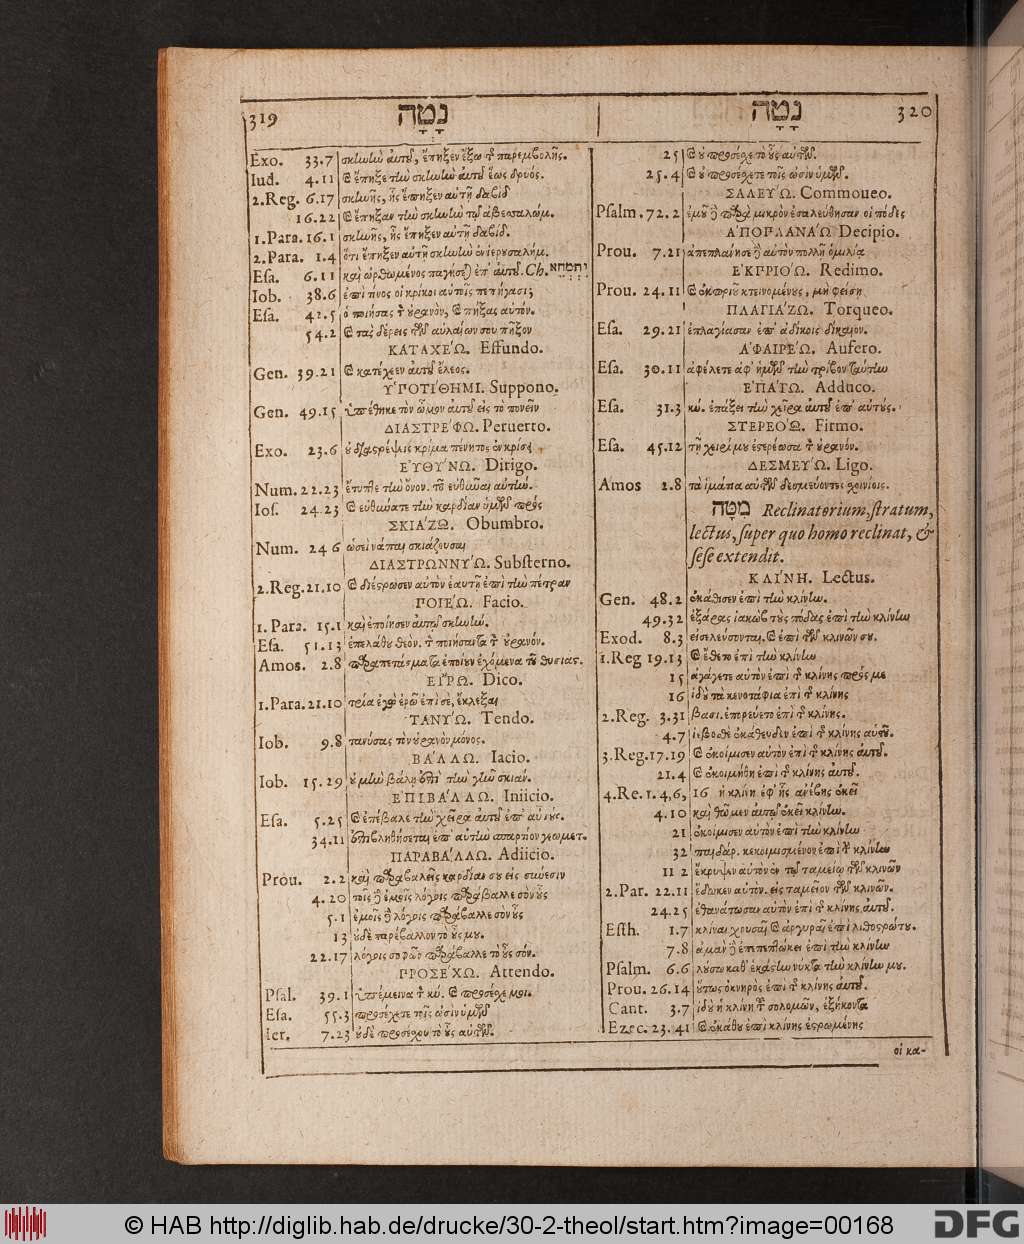 319 נָטָה
Exo. 33.7 σκηνὴν αὐτοῦ, ἔπηξεν ἔξω τῆς παρεμβολῆς.
Iud. 4.11 καὶ ἔπηξε τὴν σκηνὴν αὐτοῦ ἕως δρυός.
2.Reg. 6.17 σκηνῆς, ἧς ἔπηξεν αὐτῇ δαβὶδ
16.22 καὶ ἔπηξαν τὴν σκηνὴν τῷ ἀβεσαλώμ.
1.Para. 16.1 σκηνῆς, ἧς ἔπηξεν αὐτῇ δαβίδ.
2.Para. 1.4 ὅτι ἔπηξεν αὐτῇ σκηνὴν ἐν ἱερουσαλήμ.
Esa. 6.11 καὶ ὠρθωμένος παγήσεται ἐπ' αὐτοῦ. Ch. יִתְמְחֵא
Iob. 38.6 ἐπὶ τίνος οἱ κρίκοι αὐτῆς πεπήγασι;
Esa. 42.5 ὁ ποιήσας τὸν οὐρανὸν, καὶ πήξας αὐτόν.
54.2 καὶ τὰς δέρεις τῶν αὐλαίων σου πῆξον
ΚΑΤΑΧΕΏ. Effundo.
Gen. 39.21 καὶ κατέχεεν αὐτοῦ ἔλεος.
ὙΠΟΤΊΘΗΜΙ. Suppono.
Gen. 49.15 ὑπέθηκε τὸν ὦμον αὐτοῦ εἰς τὸ πονεῖν
ΔΙΑΣΤΡΈΦΩ. Peruerto.
Exo. 23.6 οὐ διαστρέψεις κρίμα πένητος ἐν κρίσει
ΕΥ̓ΘΎΝΩ. Dirigo.
Num. 22.23 ἔτυπτε τὴν ὄνον. τοῦ εὐθῦναι αὐτήν.
Ios. 24.23 καὶ εὐθύνατε τὴν καρδίαν ὑμῶν πρὸς
ΣΚΙΆΖΩ. Obumbro.
Num. 24 6 ὡσεὶ νάπαι σκιάζουσαι
ΔΙΑΣΤΡΩΝΝΎΩ. Substerno.
2.Reg. 21.10 καὶ διέστρωσεν αὐτὸν ἑαυτῇ ἐπὶ τὴν πέτραν
ΠΟΙΈΩ. Facio.
1. Para. 15.1 καὶ ἐποίησεν αὐτῷ σκηνήν.
Esa. 51.13 ἐπελάθου θεὸν. τὸν ποιήσαντα τὸν οὐρανόν.
Amos. 2.8 παραπετάσματα ἐποίουν ἐχόμενα τοῦ θυσιας.
ΕἼΡΩ. Dico.
1.Para. 21.10 τρία ἐγὼ ἐρῶ ἐπὶ σὲ, ἔκλεξαι
ΤΑΝΎΩ. Tendo.
Iob. 9.8 τανύσας τὸν οὐρανὸν μόνος.
ΒΆΛΛΩ. Iacio.
Iob. 15.29 οὐ μὴν βάλῃ ἐπὶ τὴν γῆν σκιάν.
ΕΠΙΒΆΛΛΩ. Iniicio.
Esa. 5.25 καὶ ἐπέβαλε τὴν χεῖρα αὐτοῦ ἐπ' αὐτούς.
34.11 ἐπιβληθήσεται ἐπ' αὐτὴν σπαρτίον γεωμετ.
ΠΑΡΑΒΆΛΛΩ. Adiicio.
Prou. 2.2 καὶ παραβαλεῖς καρδίαν σου εἰς σύνεσιν
4.20 τοῖς δὲ ἐμοῖς λόγοις παράβαλλε σὸν οὖς
5.1 ἐμοῖς δὲ λόγοις παράβαλλε σὸν οὖς
13 οὐδὲ παρέβαλλον τὸ οὖς μου.
22.17 λόγοις σοφῶν παράβαλλε τὸ οὖς σόν.
ΠΡΟΣΈΧΩ. Attendo.
Psal. 39.1 ὑπέμεινα τὸν κύ. καὶ προσέσχε μοι.
Esa. 55.3 προσέχετε τοῖς ὠσὶν ὑμῶν
Ier. 7.23 οὐδὲ προσέσχον τὸ οὖς αὐτῶν.
נָטָה 320
25 καὶ οὐ προσέσχε τὸ οὖς αὐτῶν.
25.4 καὶ οὐ προσέχετε τοῖς ὠσὶν ὑμῶν.
ΣΑΛΕΎΩ. Commoueo.
Psalm. 72.2 ἐμοῦ δὲ παρὰ μικρὸν ἐσαλεύθησαν οἱ πόδες
ἈΠΟΠΛΑΝΆΩ Decipio.
Prou. 7.21 ἀπεπλάνησε δὲ αὐτὸν πολλῇ ὁμιλίᾳ
ἘΚΠΡΙΌΩ. Redimo.
Prou. 24.11 καὶ ἐκπρίου κτεινομένους, μὴ φείσῃ
ΠΛΑΓΙΆΖΩ. Torqueo.
Esa. 29.21 ἐπλαγίασαν ἐπ' ἀδίκοις δίκαιον.
ἈΦΑΙΡΈΩ. Aufero.
Esa. 30.11 ἀφέλετε ἀφ' ἡμῶν τὴν τρίβον ταύτην
ἘΠΆΓΩ. Adduco.
Esa. 31.3 κύ. ἐπάξει τὴν χεῖρα αὐτοῦ ἐπ' αὐτούς.
ΣΤΕΡΕΌΩ. Firmo.
Esa. 45.12 τῇ χειρί μου ἐστερέωσα τὸν οὐρανόν.
ΔΕΣΜΕΎΩ. Ligo.
Amos 2.8 τὰ ἱμάτια αὐτῶν δεσμεύοντες σχοινίοις.
מִטָּה Reclinatorium, stratum,
lectus, super quo homo reclinat, &
sese extendit.
ΚΛΊΝΗ. Lectus.
Gen. 48.2 ἐκάθισεν ἐπὶ τὴν κλίνην.
49.32 ἐξάρας ἰακὼβ τοὺς πόδας ἐπὶ τὴν κλίνην
Exod. 8.3 εἰσελεύσονται. καὶ ἐπὶ τῶν κλινῶν σου.
1.Reg 19.13 καὶ ἔθετο ἐπὶ τὴν κλίνην
15 ἀγάγετε αὐτὸν ἐπὶ τῆς κλίνης πρός με
16 ἰδοὺ τὰ κενοτάφια ἐπὶ τῆς κλίνης
2.Reg. 3.31 βασι. ἐπορεύετο ἐπὶ τῆς κλίνης.
4.7 ἰεβοσθὲ ἐκάθευδεν ἐπὶ τῆς κλίνης αὐτοῦ.
3.Reg. 17.19 καὶ ἐκοίμισεν αὐτὸν ἐπὶ τῆς κλίνης αὐτοῦ.
21.4 καὶ ἐκοιμήθη ἐπὶ τῆς κλίνης αὐτοῦ.
4.Re. 1.4,6, 16 ἡ κλίνη ἐφ' ἧς ἀνέβης ἐκεῖ
4.10 καὶ θῶμεν αὐτῷ ἐκεῖ κλίνην.
21 ἐκοίμισεν αὐτὸν ἐπὶ τὴν κλίνην
32 παιδάρ. κεκοιμισμένον ἐπὶ τὴν κλίνην
11 2 ἔκρυψαν αὐτὸν ἐν τῷ ταμείῳ τῶν κλινῶν
2.Par. 22.11 ἔδωκεν αὐτὸν. εἰς ταμεῖον τῶν κλινῶν.
24.25 ἐθανάτωσαν αὐτὸν ἐπὶ τῆς κλίνης αὐτοῦ.
Esth. 1.7 κλίναι χρυσαῖ καὶ ἀργυραῖ ἐπὶ λιθοστρώτου.
7.8 ἀμὰν δὲ ἐπιπεπτώκει ἐπὶ τὴν κλίνην
Psalm. 6.6 λούσω καθ' ἑκάστην νύκτα τὴν κλίνην μου.
Prou. 26.14 οὕτως ὀκνηρὸς ἐπὶ τῆς κλίνης αὐτοῦ.
Cant. 3.7 ἰδοὺ ἡ κλίνη τοῦ σολομῶν, ἑξήκοντα
Ezec. 23.41 καὶ ἐκάθου ἐπὶ κλίνης ἐστρωμένης
οἱ κα-
© HAB http://diglib.hab.de/drucke/30-2-theol/start.htm?image=00168
DFG